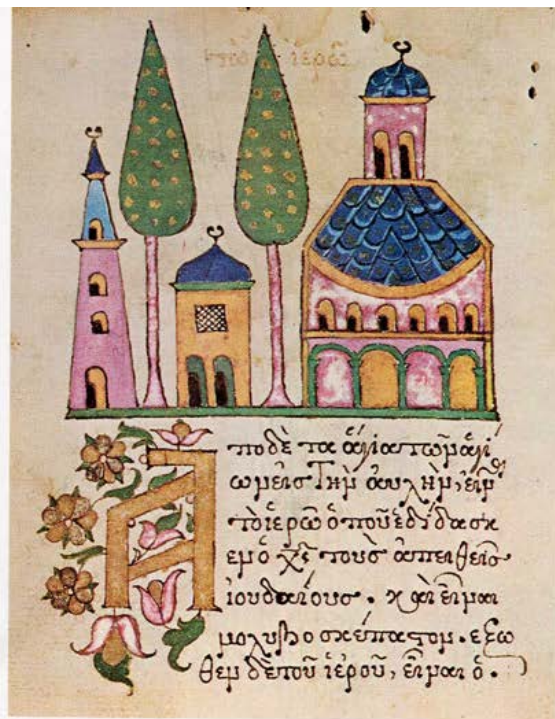 τὸ ἱερῶ
Ἀποδὲ τα ἅγια τῶν ἁγί
ων εἰς Τὴν ἀυλὴν, εἶν
τὸ ἱερῶ ὁποῦ ἐδίδασκ
εν ὁ χς̅ τοὺσ ἀπειθεῖσ
ἰουδαίουσ. καὶ εἶναι
μολυβοσκέπαστον. εξω
θεν δὲ τοῦ ἱεροῦ, εἶναι ὁ.